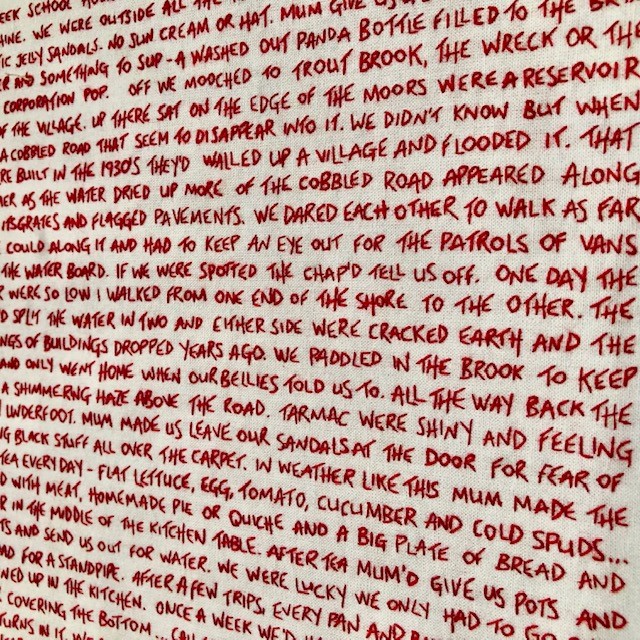 EEK SCHOOL
HINE. WE WERE OUTSIDE ALL THE
TIC JELLY SANDALS. NO SUN CREAM OR HAT. MUM GIVE US
ER AND SOMETHING TO SUP - A WASHED OUT PANDA BOTTLE FILLED TO THE
CORPORATION POP. OFF WE MOOCHED TO TROUT BROOK, THE WRECK OR THE
OF THE VILLAGE. UP THERE SAT ON THE EDGE OF THE MOORS WERE A RESERVOIR
A COBBLED ROAD THAT SEEM TO DISAPPEAR INTO IT. WE DIDN'T KNOW BUT WHEN
RE BUILT IN THE 1930'S THEY'D WALLED UP A VILLAGE AND FLOODED IT. THAT
ER AS THE WATER DRIED UP MORE OF THE COBBLED ROAD APPEARED ALONG
ITS GRATES AND FLAGGED PAVEMENTS. WE DARED EACH OTHER TO WALK AS FAR
COULD ALONG IT AND HAD TO KEEP AN EYE OUT FOR THE PATROLS OF VANS
THE WATER BOARD. IF WE WERE SPOTTED THE CHAP'D TELL US OFF. ONE DAY THE
R WERE SO LOW I WALKED FROM ONE END OF THE SHORE TO THE OTHER. THE
D SPLIT THE WATER IN TWO AND EITHER SIDE WERE CRACKED EARTH AND THE
NGS OF BUILDINGS DROPPED YEARS AGO. WE PADDLED IN THE BROOK TO KEEP
AND ONLY WENT HOME WHEN OUR BELLIES TOLD US TO. ALL THE WAY BACK THE
A SHIMMERNG HAZE ABOVE THE ROAD. TARMAC WERE SHINY AND FEELING
UNDERFOOT. MUM MADE US LEAVE OUR SANDALS AT THE DOOR FOR FEAR OF
NG BLACK STUFF ALL OVER THE CARPET. IN WEATHER LIKE THIS MUM MADE THE
TEA EVERY DAY - FLAT LETTUCE, EGG, TOMATO, CUCUMBER AND COLD SPUDS...
D WITH MEAT, HOMEMADE PIE OR QUICHE AND A BIG PLATE OF BREAD AND
R IN THE MIDDLE OF THE KITCHEN TABLE. AFTER TEA MUM'D GIVE US POTS AND
TS AND SEND US OUT FOR WATER. WE WERE LUCKY WE ONLY HAD TO
AD FOR A STANDPIPE. AFTER A FEW TRIPS, EVERY PAN AND
NED UP IN THE KITCHEN. ONCE A WEEK WE'D
COVERING THE BOTTOM...
TURNS IN IT.